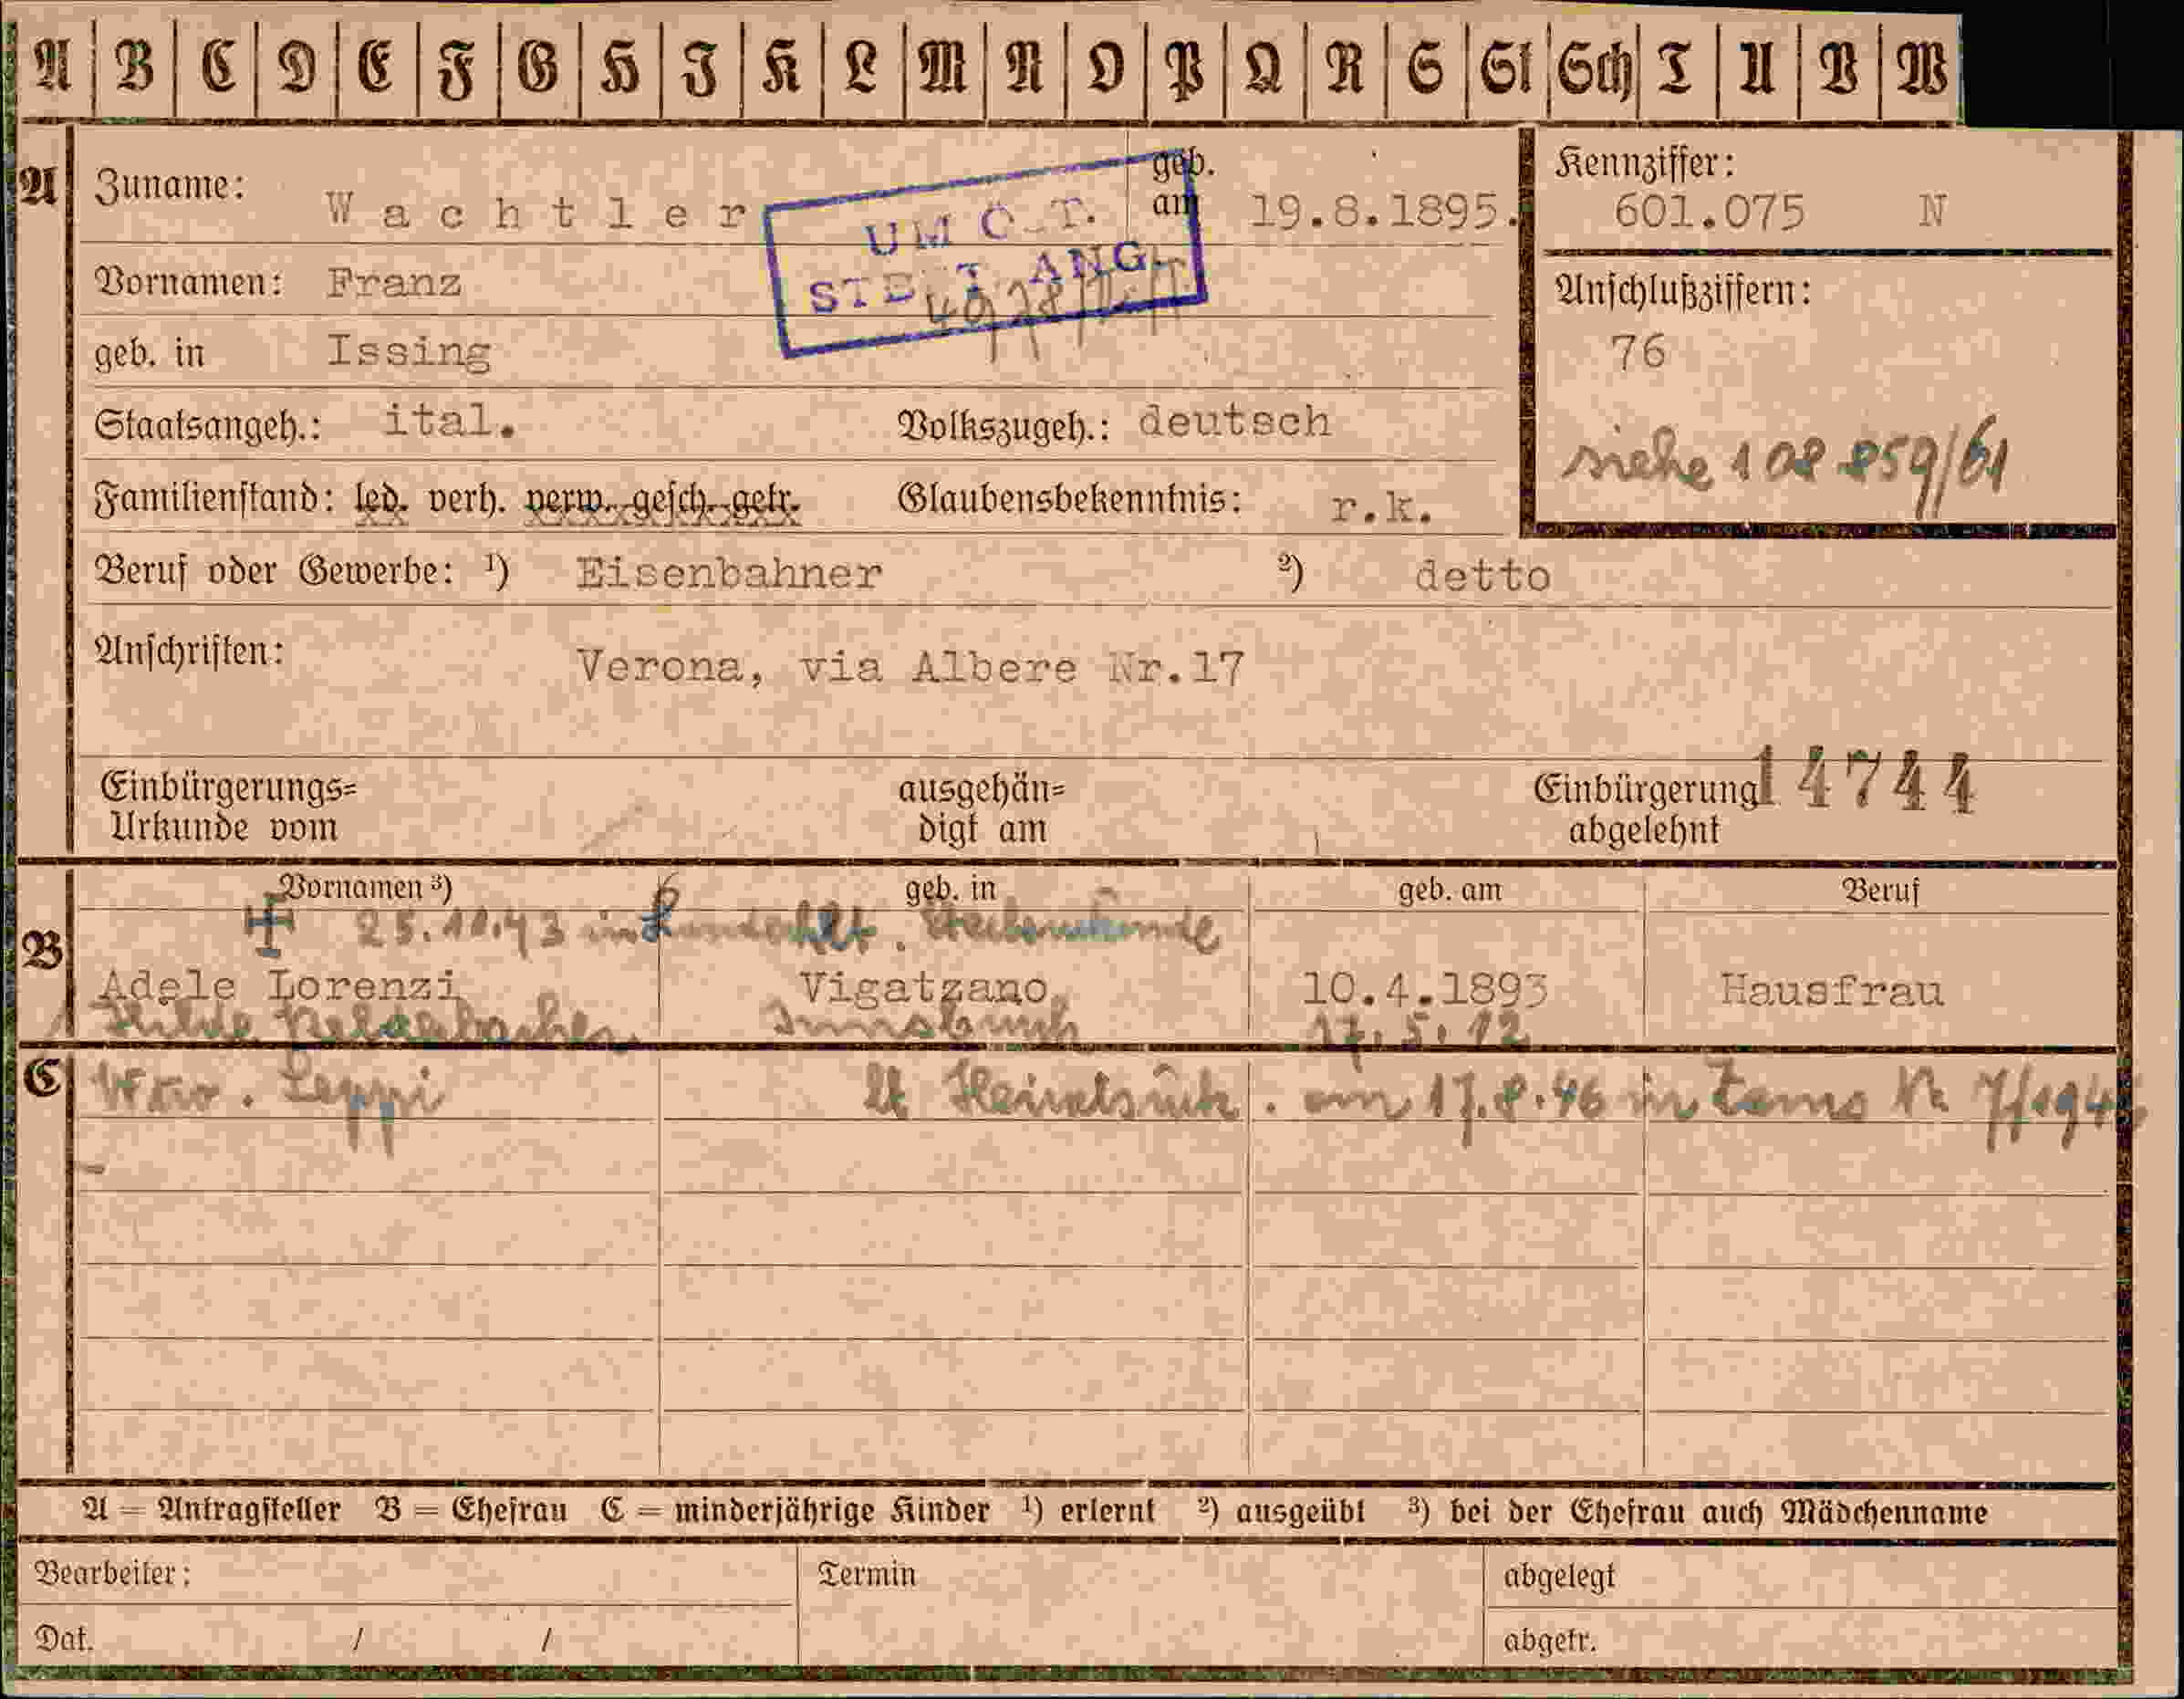 A B C D E F G H I K L M N O P Q R S St Sch T U V W
A Zuname: Wachtler geb. am 19.8.1895.
Kennziffer:
601.075 N
UM O.T.
ST ANG
Vornamen: Franz
Anschlußziffern:
geb. in Issing
76
Staatsangeh.: ital. Volkszugeh.: deutsch
siehe 108 859/61
Familienstand: led. verh. verw. gesch. getr. Glaubensbekenntnis: r.k.
Beruf oder Gewerbe: ¹) Eisenbahner ²) detto
Anschriften: Verona, via Albere Nr.17
Einbürgerungs= ausgehän= Einbürgerung 14744
Urkunde vom digt am abgelehnt
B Vornamen ³) geb. in geb. am Beruf
25.10.43 in lt. Sterbeurkunde
Adele Lorenzi Vigatzano 10.4.1893 Hausfrau
Hilde Innsbruck 17.5.12
C Wwo. Leppi lt Heiratsurk. am 17.8.46 in Zams Nr. 7/194
A = Antragsteller B = Ehefrau C = minderjährige Kinder ¹) erlernt ²) ausgeübt ³) bei der Ehefrau auch Mädchenname
Bearbeiter: Termin abgelegt
Dat. / / abgetr.